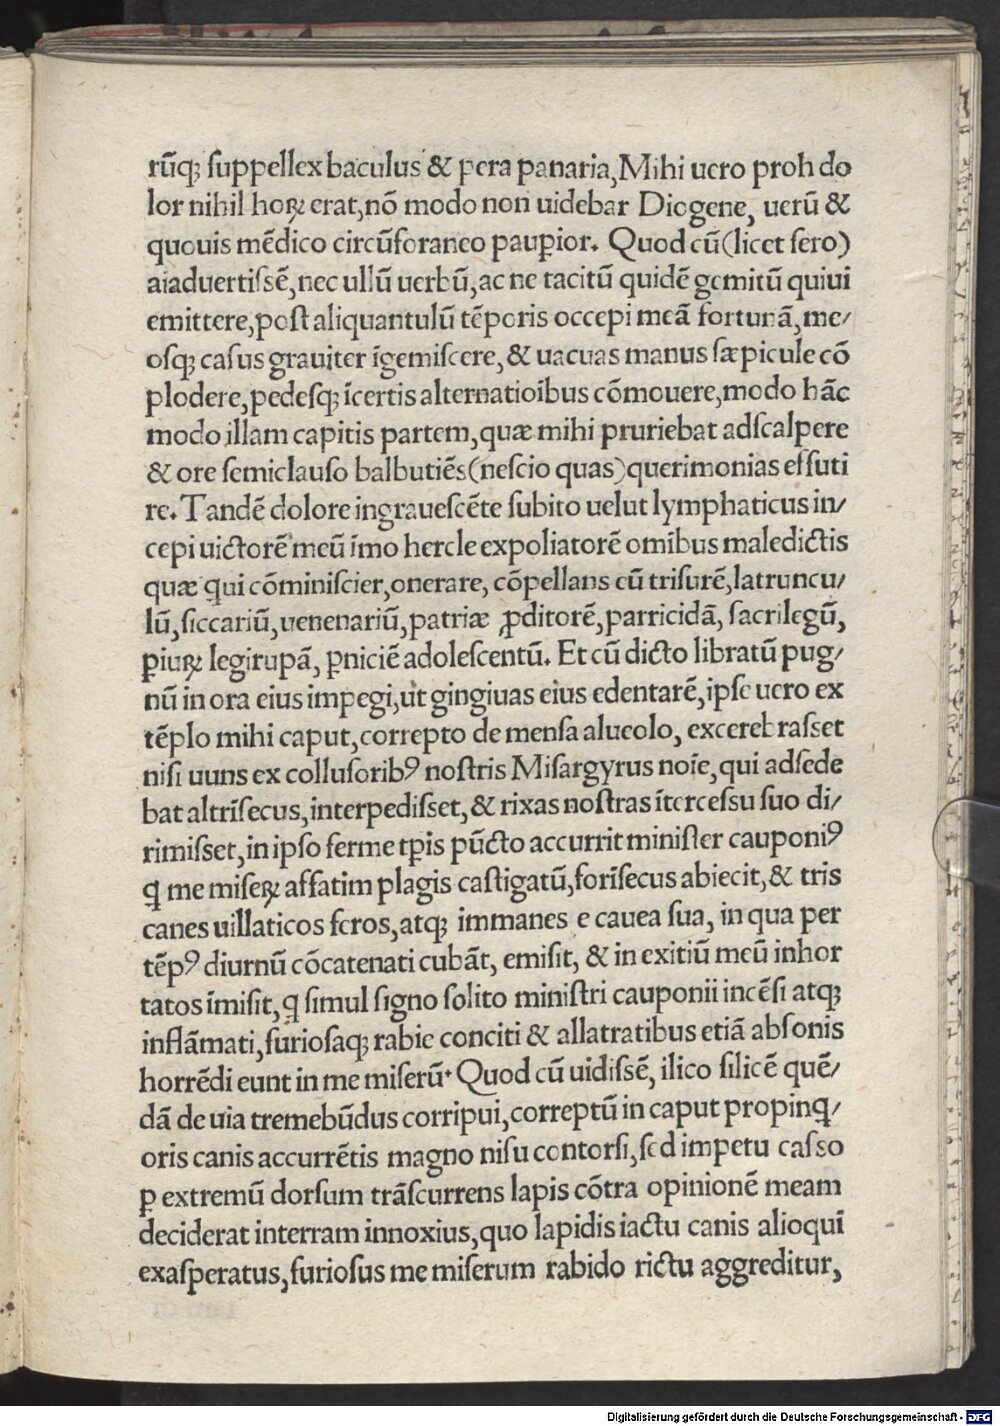 rūqꝫ ſuppellex baculus & pera panaria, Mihi uero proh do
lor nihil hoꝝ erat, nō modo non uidebar Diogene, uerū &
quouis mēdico circūforaneo pauꝑior. Quod cū (licet ſero)
aīaduertiſſē, nec ullū uerbū, ac ne tacitū quidē gemitū quiui
emittere, poſt aliquantulū tēporis occepi meā fortunā, me/
oſqꝫ caſus grauiter īgemiſcere, & uacuas manus ſæpicule cō
plodere, pedeſqꝫ īcertis alternatioībus cōmouere, modo hāc
modo illam capitis partem, quæ mihi pruriebat adſcalpere
& ore ſemiclauſo balbutiēs (neſcio quas) querimonias effuti
re. Tandē dolore ingraueſcēte ſubito uelut lymphaticus in/
cepi uictorē meū īmo hercle expoliatorē omībus maledictis
quæ qui cōminiſcier, onerare, cōpellans eū trifurē, latruncu/
lū, ſiccariū, uenenariū, patriæ ꝓditorē, parricidā, ſacrilegū,
ꝑiuꝝ legirupā, ꝑniciē adoleſcentū. Et cū dicto libratū pug/
nū in ora eius impegi, ut gingiuas eius edentarē, ipſe uero ex
tēplo mihi caput, correpto de menſa alueolo, excerebraſſet
niſi uuns ex colluſoribꝰ noſtris Miſargyrus noīe, qui adſede
bat altrīſecus, interpediſſet, & rixas noſtras īterceſſu ſuo di/
rimiſſet, in ipſo ferme tꝑis pūcto accurrit miniſter cauponiꝰ
q̨ me miſeꝝ affatim plagis caſtigatū, forīſecus abiecit, & tris
canes uillaticos feros, atqꝫ immanes e cauea ſua, in qua per
tēpꝰ diurnū cōcatenati cubāt, emiſit, & in exitiū meū inhor
tatos īmiſit, q̨ ſimul ſigno ſolito miniſtri cauponii incēſi atqꝫ
inflāmati, furioſaqꝫ rabie conciti & allatratibus etiā abſonis
horrēdi eunt in me miſerū. Quod cū uidiſſē, ilico ſilicē quē/
dā de uia tremebūdus corripui, correptū in caput propinq̨/
oris canis accurrētis magno niſu contorſi, ſed impetu caſſo
ꝑ extremū dorſum trāſcurrens lapis cōtra opinionē meam
deciderat interram innoxius, quo lapidis iactu canis alioqui
exaſperatus, furioſus me miſerum rabido rictu aggreditur,
Digitalisierung gefördert durch die Deutsche Forschungsgemeinschaft - DFG